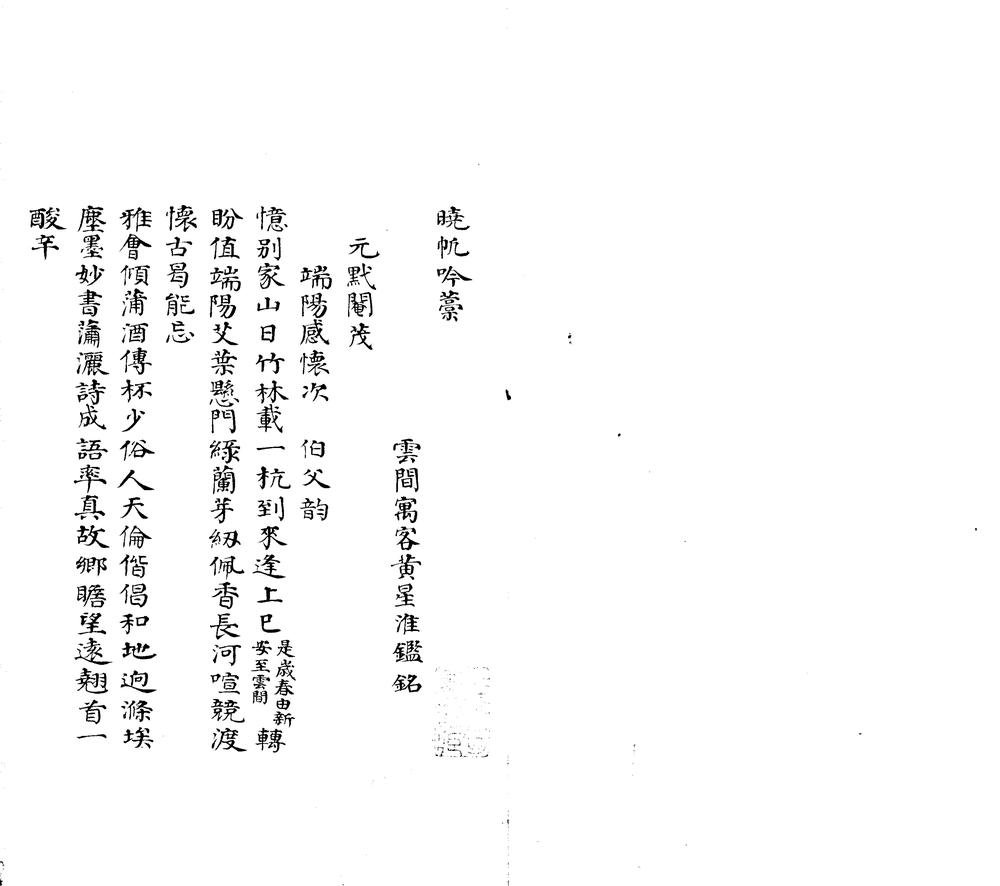 曉帆吟藁
雲間寓客黄星淮鑑銘
元黓閹茂
端陽感懷次 伯父韵
憶别家山日竹林載一杭到來逢上巳是歲春由新安至雲間轉
盼值端陽艾葉懸門綠蘭芽紉佩香長河喧競渡
懷古曷能忘
雅會傾蒲酒傳杯少俗人天倫偕倡和地逈滌埃
塵墨妙書蕭灑詩成語率真故鄉瞻望遠翹首一
酸辛